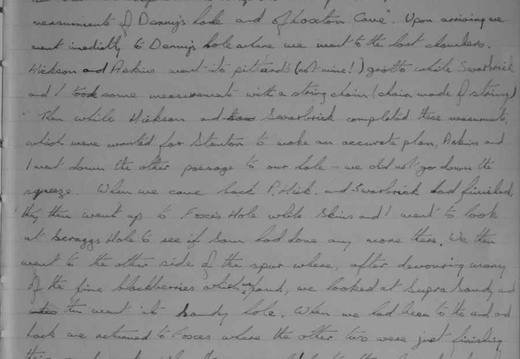 measurement of Denny's hole and of Loxton Cave. Upon arriving we
went inedibly to Denny's hole where we went to the last chambers.
Hickson and Askins went into pit and (not mine!) grotto while Swarbrick
and I took some measurements with a string chain (chain made of string)
Then while Hickson and Swarbrick completed these measurements
which were wanted for Stanton to make an accurate plan, Askins and
I went down the other passage to our hole - we did not go down the
squeeze. When we came back P. Hick. and Swarbrick had finished,
they then went up to Foxes Hole while Skins and I went to look
at Scraggs Hole to see if Sam had done any more there. We then
went to the other side of the spur where, after devouring many
of the fine blackberries which we found, we looked at Supra Sandy and
then went into Sandy hole. When we had been to the end and
back we returned to Foxes where the other two were just finishing